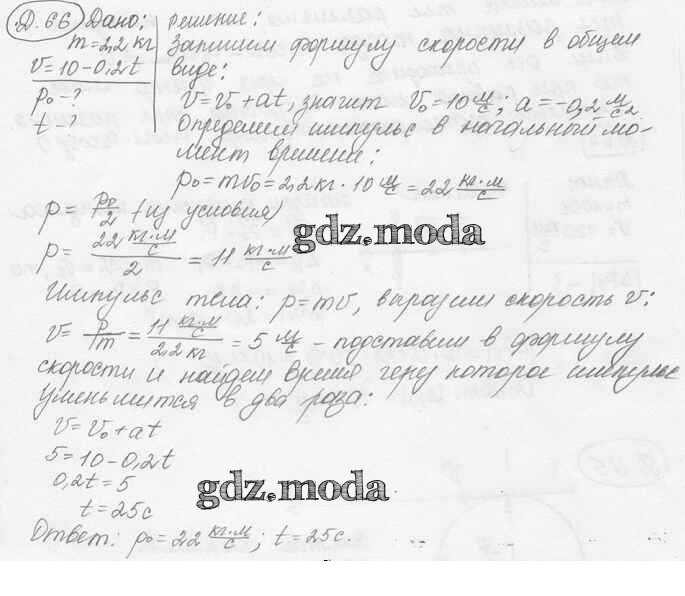 Д.66 Дано: Решение:
m=2,2 кг Запишем формулу скорости в общем
v=10-0,2t виде:
p₀-? v=v₀+at, значит v₀=10 м/с; a=-0,2 м/с²
t-? Определим импульс в начальный мо-
мент времени:
p₀=mv₀=2,2кг·10 м/с=22 кг·м/с
p=p₀/2 (из условия)
p=22 кг·м/с / 2 = 11 кг·м/с
gdz.moda
Импульс тела: p=mv, выразим скорость v:
v=p/m=11 кг·м/с / 2,2 кг = 5 м/с - подставим в формулу
скорости и найдем время через которое импульс
уменьшится в два раза:
v=v₀+at
5=10-0,2t
0,2t=5
gdz.moda
t=25с
Ответ: p₀=22 кг·м/с; t=25с.